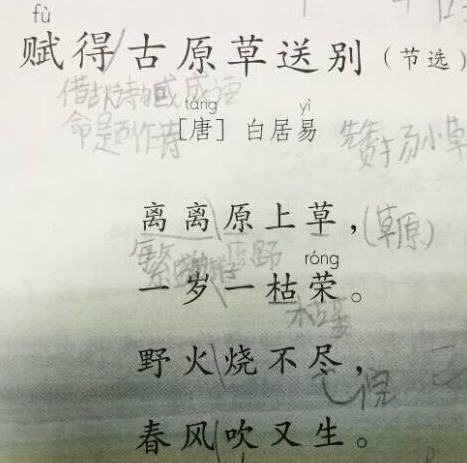 fù
赋得古原草送别（节选）
借古诗或成语
命题作背
táng yì
[唐] 白居易
赞扬小草
离离原上草，(草原)
繁盛 原野
róng
一岁一枯荣。
枯萎
野火烧不尽，
完
春风吹又生。